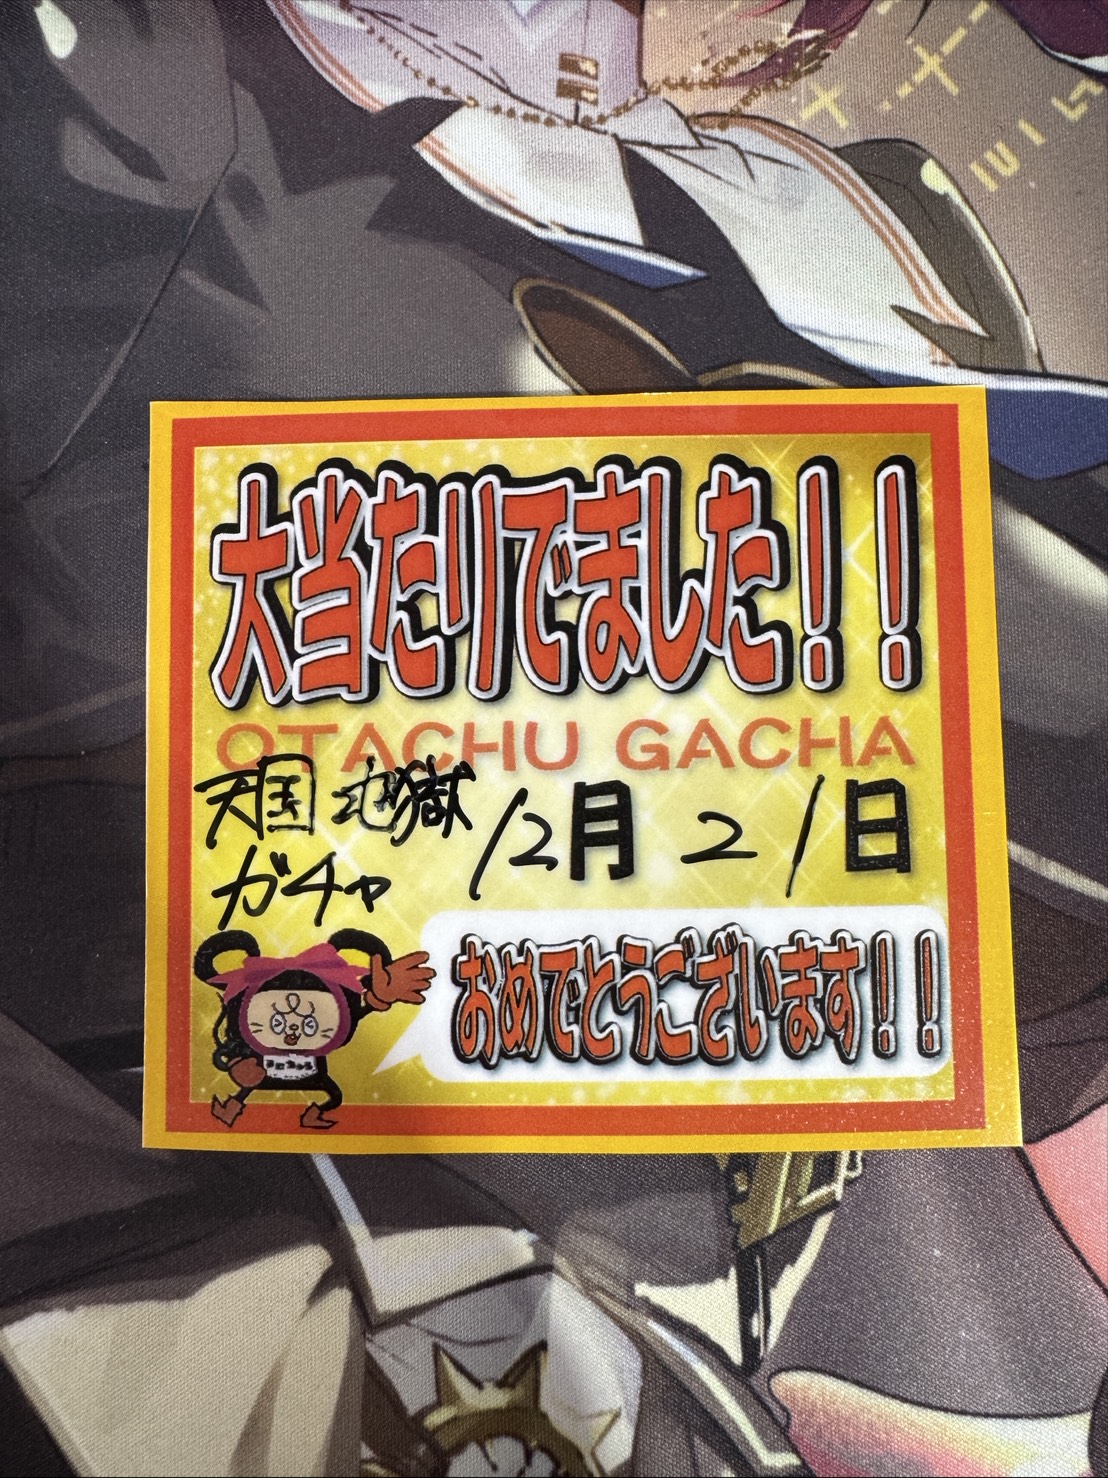 大当たりでました！！
OTACHU GACHA
天国地獄
ガチャ
12月21日
おめでとうございます！！